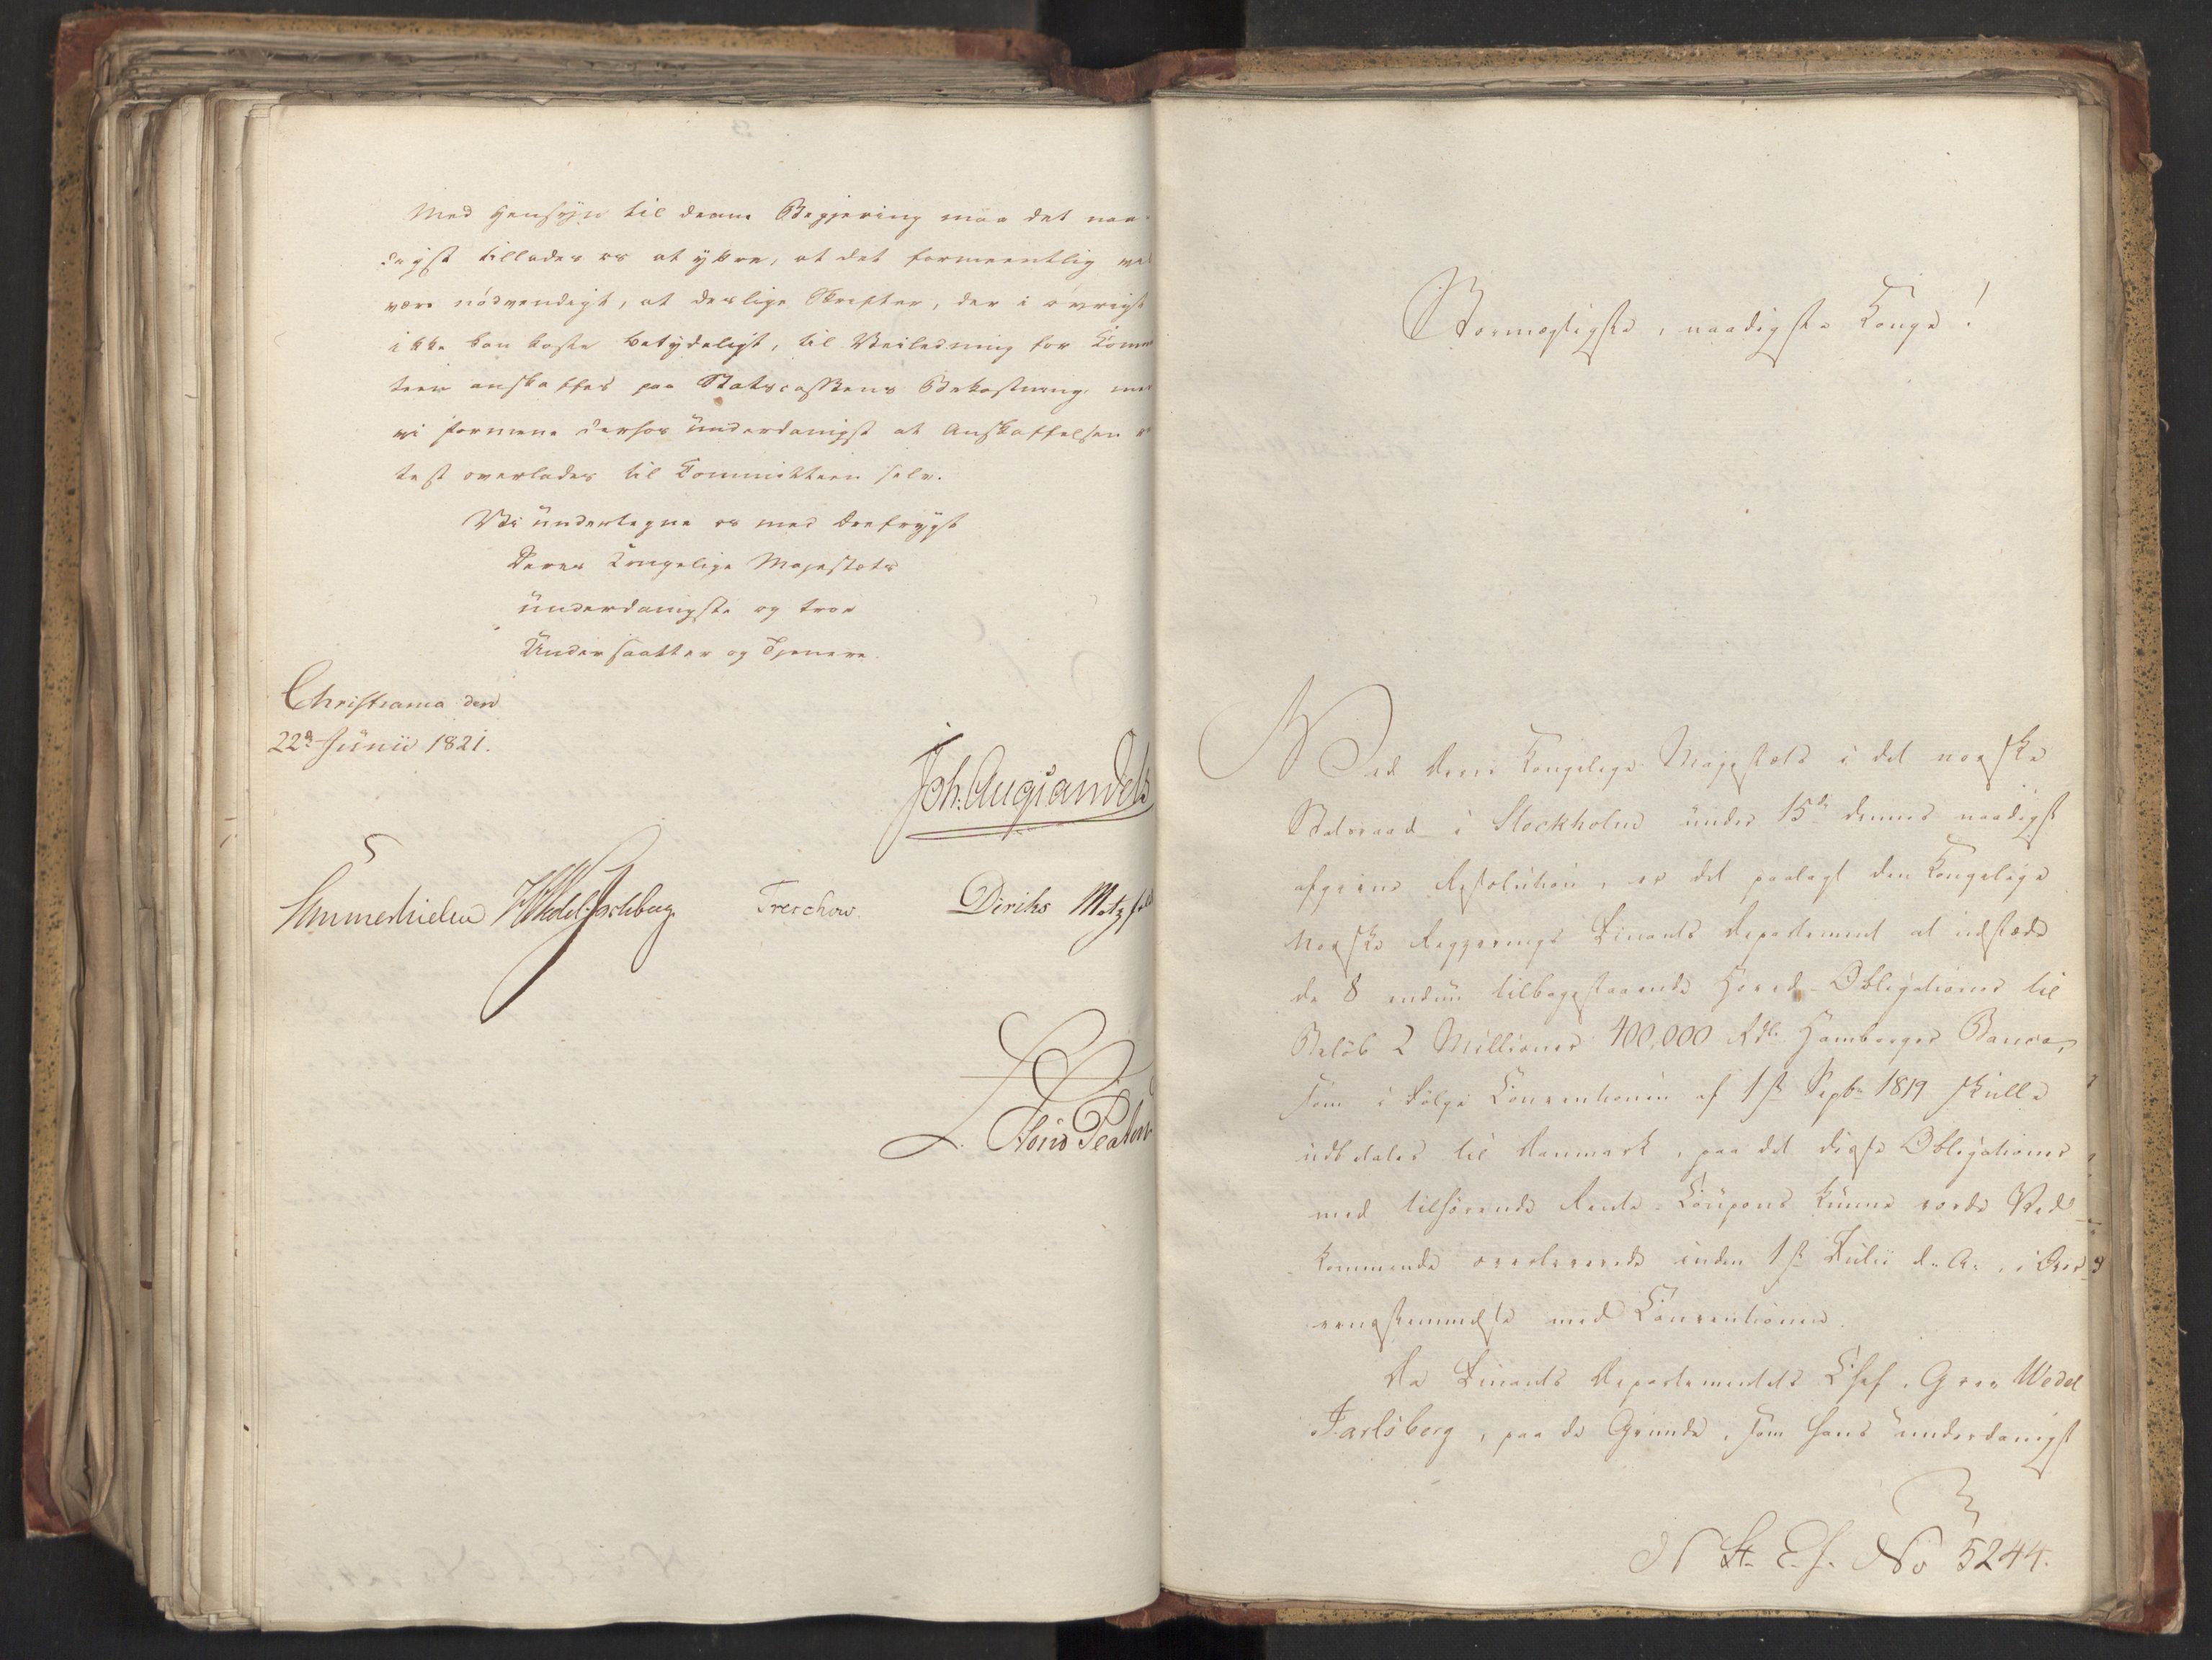 Med Hensyn til denne Begjering maa det naa-
digst tillades os at yttre, at det formeentlig vel
være nödvendigt, at deslige Skrifter, der i övrigt
ikke kan koste betydeligt, til Veiledning for Comm
teen anskaffes paa Statscassens Bekostning, men
vi formene derhos ünderdanigst at Anskaffelsen
test overlades til Committeen selv.
Vi ündertegne os med drefrygt
Deres Kongelige Majestæts
ünderdanigste og troe
Undersaatter og Tjenere.
Christiania den
22d Junii 1821.
Joh. Aug: Sandels
Sommerhielm HWedel Jarlsberg Treschow Diriks Motzfeldt
L.
Stormægtigste, naadigste Konge!
Ved Deres Kongelige Majestæts i det norske
Statsraad i Stockholm ünder 15de dennes naadigst
afgivne Resolution, er det paalagt den Kongelige
Norske Regjerings Finants Departement at üdstæde
de 8 endnü tilbagestaaende Hoved-Obligationer til
Belöb 2 Millioner 400,000 Rdlr Hamborger Banco,
som i Fölge Conventionen af 1ste Septbr 1819 skülle
üdbetales til Danmark, paa det disse Obligationer
med tilhörende Rente-Coupons künne vorde Ved-
kommende overleverede inden 1ste Julii d. A., i Over-
eensstemmelse med Conventionen.
Da Finants Departementets Chef, Greve Wedel
Jarlsberg, paa de Grunde, som hans ünderdanigst
N St. E. h. No 5244.